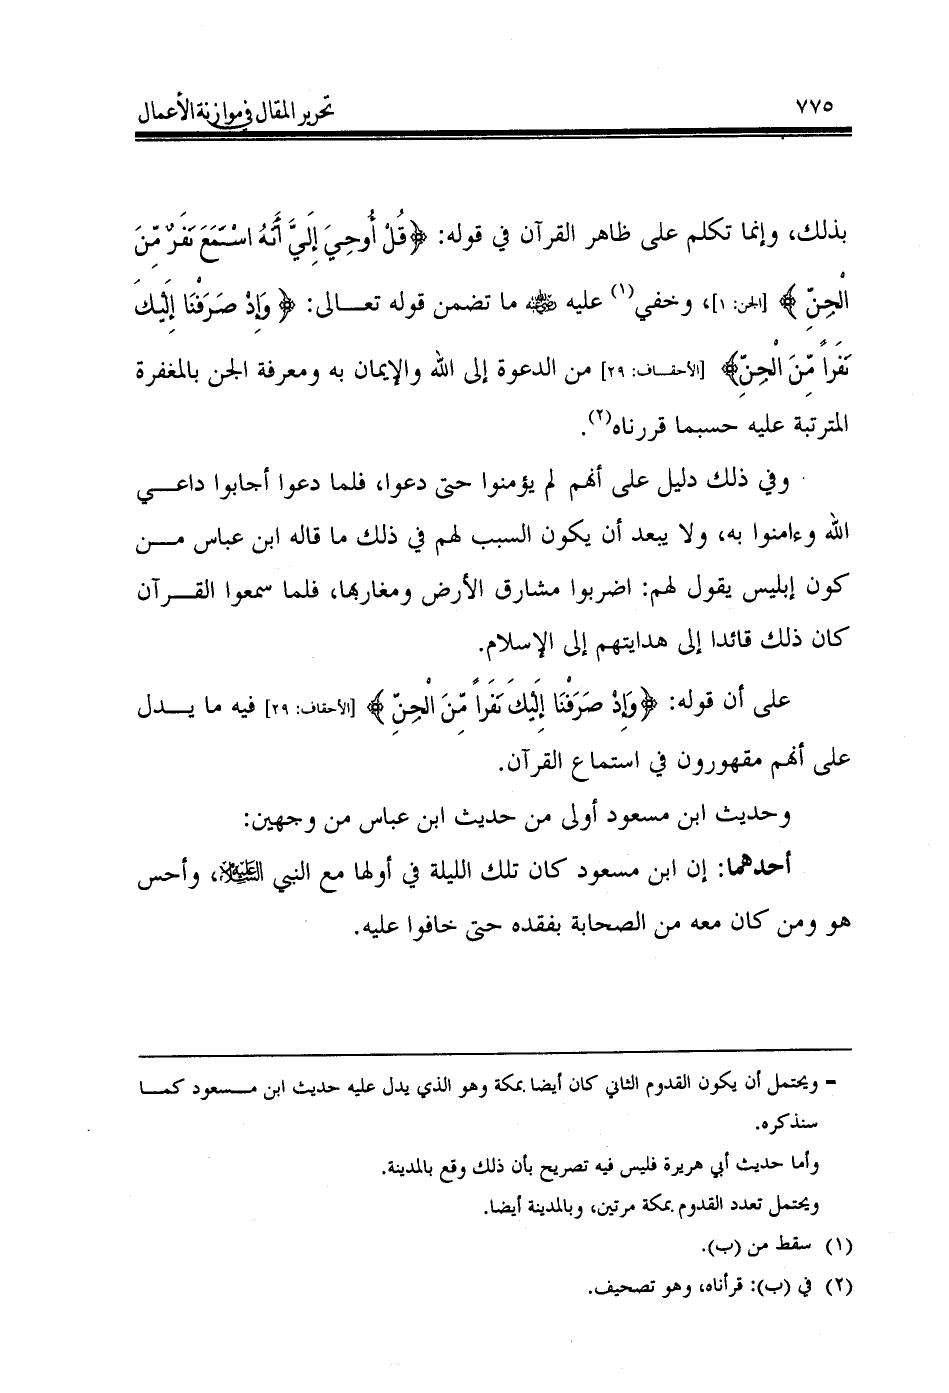 تحرير المقال في موازنة الأعمال ٧٧٥
بذلك، وإنما تكلم على ظاهر القرآن في قوله: ﴿قُلْ أُوحِيَ إِلَيَّ أَنَّهُ اسْتَمَعَ نَفَرٌ مِّنَ
الْجِنِّ﴾ [الجن: ١]، وخفي(١) عليه ﷺ ما تضمن قوله تعـــالى: ﴿وَإِذْ صَرَفْنَا إِلَيْكَ
نَفَراً مِّنَ الْجِنِّ﴾ [الأحقـاف: ٢٩] من الدعوة إلى الله والإيمان به ومعرفة الجن بالمغفرة
المترتبة عليه حسبما قررناه(٢).
وفي ذلك دليل على أنهم لم يؤمنوا حتى دعوا، فلما دعوا أجابوا داعـــي
الله وءامنوا به، ولا يبعد أن يكون السبب لهم في ذلك ما قاله ابن عباس مـــن
كون إبليس يقول لهم: اضربوا مشارق الأرض ومغاربها، فلما سمعوا القـــرآن
كان ذلك قائدا إلى هدايتهم إلى الإسلام.
على أن قوله: ﴿وَإِذْ صَرَفْنَا إِلَيْكَ نَفَراً مِّنَ الْجِنِّ﴾ [الأحقاف: ٢٩] فيه ما يـــدل
على أنهم مقهورون في استماع القرآن.
وحديث ابن مسعود أولى من حديث ابن عباس من وجهين:
أحدهما: إن ابن مسعود كان تلك الليلة في أولها مع النبي العَلَيْهِ السَّلَام، وأحس
هو ومن كان معه من الصحابة بفقده حتى خافوا عليه.
= ويحتمل أن يكون القدوم الثاني كان أيضا بمكة وهو الذي يدل عليه حديث ابن مـــسعود كمـــا
سنذكره.
وأما حديث أبي هريرة فليس فيه تصريح بأن ذلك وقع بالمدينة.
ويحتمل تعدد القدوم بمكة مرتين، وبالمدينة أيضا.
(١) سقط من (ب).
(٢) في (ب): قرأناه، وهو تصحيف.